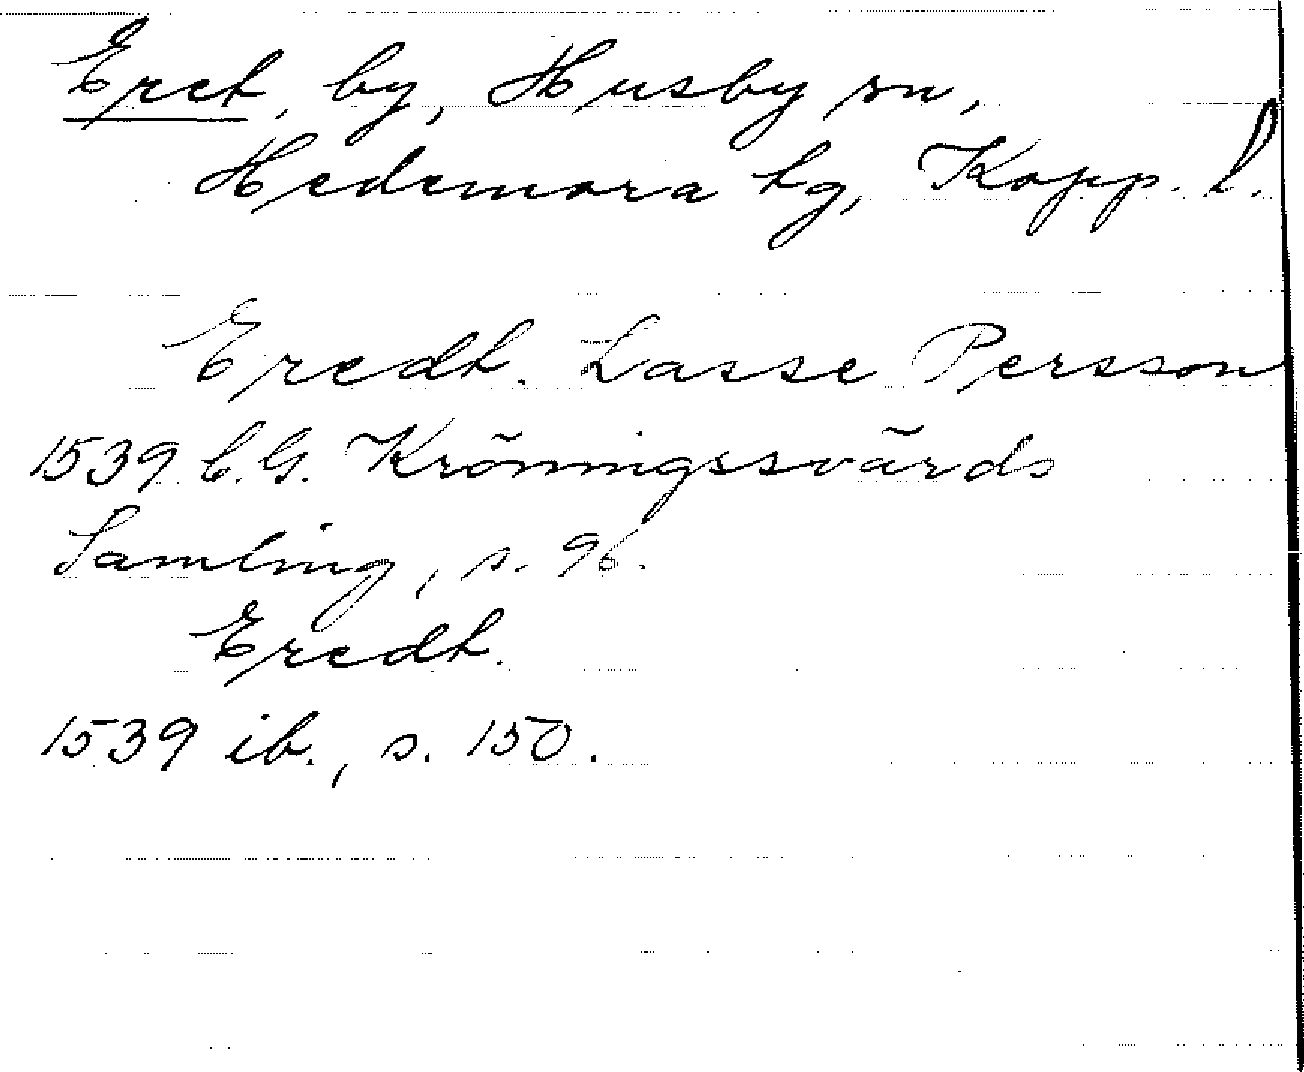 Eret, by, Husby sn,
Hedemora tg, Kopp. l.
Eredt. Lasse Persson
1539 C.G. Kröningssvärds
Samling, s. 96.
Eredt.
1539 ib., s. 150.